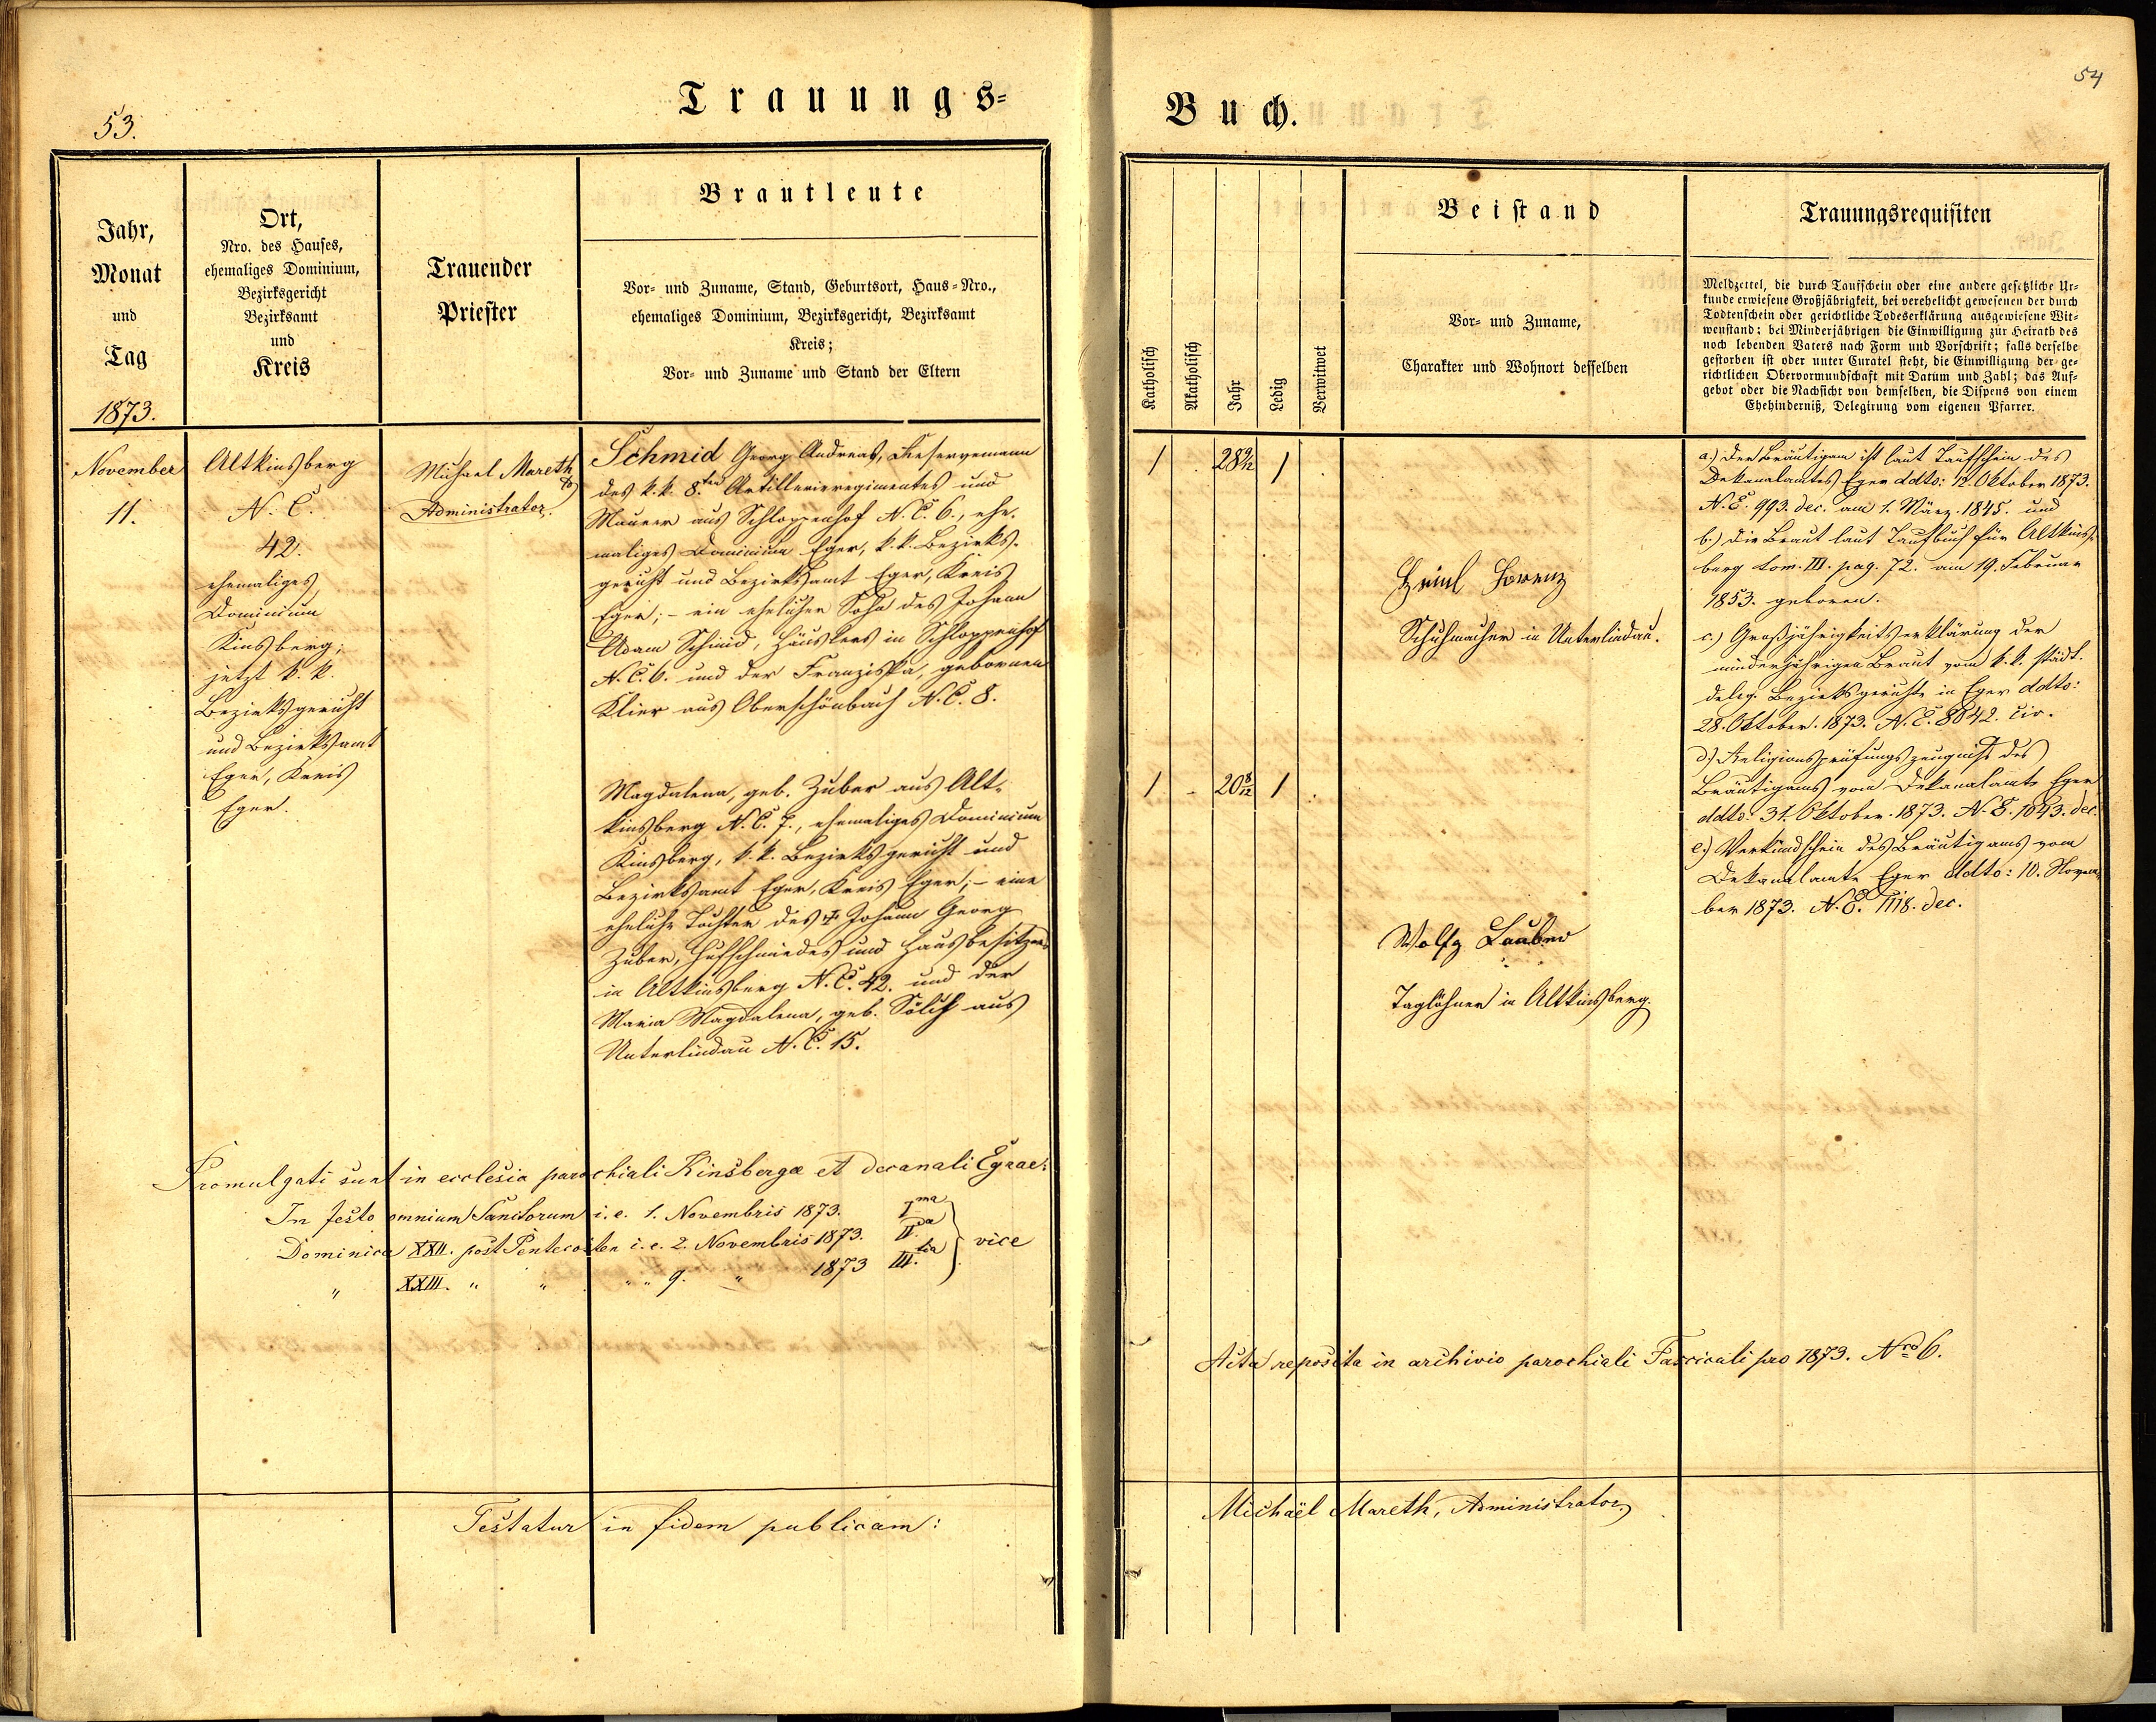 53.
Trauungs-
Jahr,
Monat
und
Tag
1873.
Ort,
Nro. des Hauses,
ehemaliges Dominium,
Bezirksgericht
Bezirksamt
und
Kreis
Trauender
Priester
Brautleute
Vor- und Zuname, Stand, Geburtsort, Haus-Nro.,
ehemaliges Dominium, Bezirksgericht, Bezirksamt
Kreis;
Vor- und Zuname und Stand der Eltern
November
11.
Altkinsberg
N. C.
42.
ehemaliges
Dominium
Kinsberg;
jetzt k. k.
Bezirksgericht
und Bezirksamt
Eger, Kreis
Eger.
Michael Mareth
Administrator.
Schmid Georg Andreas, Reservemann
des k. k. 8.ten Artillerieregimentes und
Maurer aus Schloppenhof N. C. 6., ehe-
maliges Dominium Eger, k. k. Bezirks-
gericht und Bezirksamt Eger, Kreis
Eger; – ein ehelicher Sohn des Johann
Adam Schmid, Häuslers in Schloppenhof
N. C. 6. und der Franziska, gebornen
Klier aus Oberschönbach N. C. 8.
Magdalena, geb. Zuber aus Alt-
kinsberg N. C. 7., ehemaliges Dominium
Kinsberg, k. k. Bezirksgericht und
Bezirksamt Eger, Kreis Eger; – eine
eheliche Tochter des ✝ Johann Georg
Zuber, Hufschmiedes und Hausbesitzers
in Altkinsberg N. C. 42. und der
Maria Magdalena, geb. Sölch aus
Unterlindau N. C. 15.
Promulgati sunt in ecclesia parochiali Kinsbergae et decanali Egrae:
In festo omnium Sanctorum i. e. 1. Novembris 1873. I.ma
Dominica XXII. post Pentecosten i. e. 2. Novembris 1873. II.da vice
" XXIII. " " " " 9. " 1873 III.tia
Testatur in fidem publicam:
54
Buch.
Katholisch
Akatholisch
Jahr
Ledig
Verwitwet
Beistand
Vor- und Zuname,
Charakter und Wohnort desselben
Trauungsrequisiten
Meldzettel, die durch Taufschein oder eine andere gesetzliche Ur-
kunde erwiesene Großjährigkeit, bei verehelicht gewesenen der durch
Todtenschein oder gerichtliche Todeserklärung ausgewiesene Wit-
wenstand; bei Minderjährigen die Einwilligung zur Heirath des
noch lebenden Vaters nach Form und Vorschrift; falls derselbe
gestorben ist oder unter Curatel steht, die Einwilligung der ge-
richtlichen Obervormundschaft mit Datum und Zahl; das Auf-
gebot oder die Nachsicht von demselben, die Dispens von einem
Ehehinderniß, Delegirung vom eigenen Pfarrer.
1 . 28 1 .
1 . 20 8/12 1 .
Heinl Lorenz
Schuhmacher in Unterlindau.
Wolfg Lauber
Taglöhner in Altkinsberg.
a.) Der Bräutigam ist laut Taufschein des
Dekanalamtes Eger ddto: 12. Oktober 1873.
N. E. 993. dec. am 1. März 1845. und
b.) die Braut laut Taufbuch für Altkins-
berg tom. III. pag. 72. am 19. Februar
1853. geboren.
c.) Großjährigkeitserklärung der
minderjährigen Braut vom k. k. städt.
deleg. Bezirksgerichte in Eger ddto:
28. Oktober 1873. N. E. 8042. civ.
d.) Religionsprüfungszeugniß des
Bräutigams vom Dekanalamte Eger
ddto: 31. Oktober 1873. N. E. 1043. dec.
e.) Verkündschein des Bräutigams vom
Dekanalamte Eger ddto: 10. Novem-
ber 1873. N. E. 1118. dec.
Acta reposita in archivio parochiali Fascicali pro 1873. Nro 6.
Michaël Mareth, Administrator